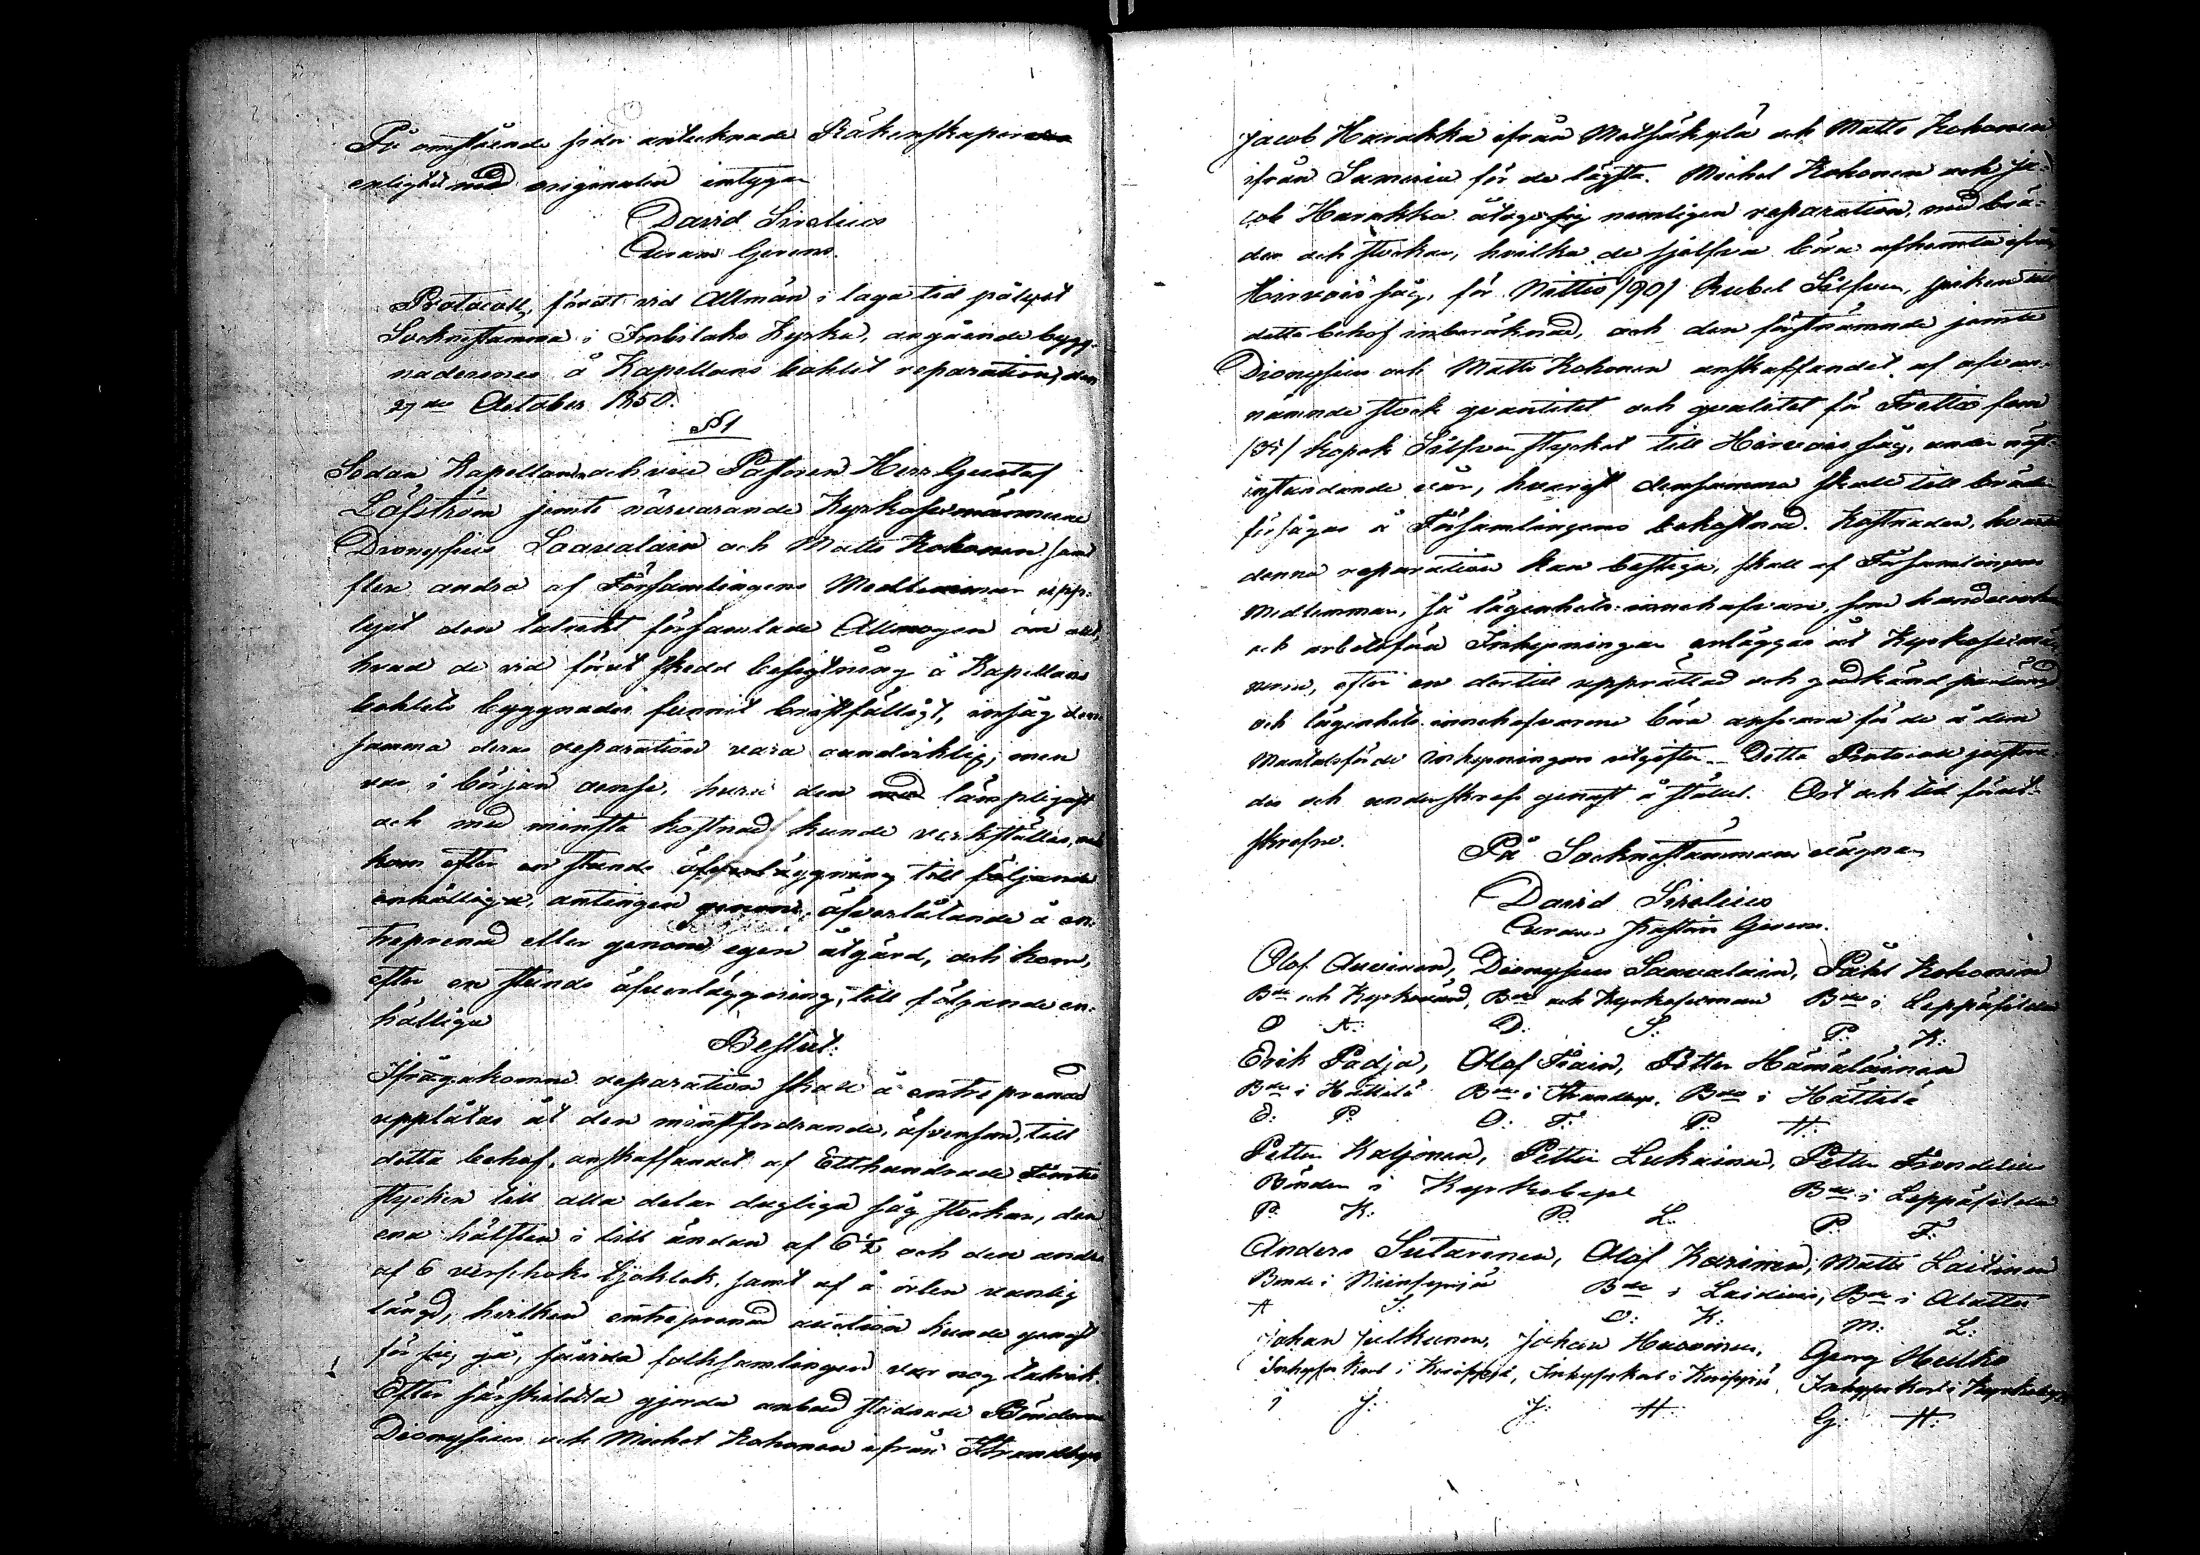 På omstående sidor antecknade Räkenskapers
enlighet med originalen intygar
David Sirelius
Adv. Gerens.
Protocoll, fördt vid Allmän i laga tid pålyst
Socknestämma i Imbilaks Kyrka, angående bygg-
nadernes å Kapellans bohlet reparation, den
27de October 1850.
§ 1
Sedan Kapellanen och vice Pastoren Herr Gustaf
Löfström jemte närvarande Kyrkoförmännerne
Dionysius Saavalain och Matts Kokonen samt
flere andra af Församlingens Medlemmar upp-
lyst den talrikt församlade Allmogen om allt,
hvad de vid förut skedd besigtning å Kapellans
bohlets byggnader funnit bristfälligt, insåg den-
samma deras reparation vara oundviklig; men
var i början oense, huru den med lämpligast
och med minsta kostnad kunde verkställas,
kom efter en stunds öfverläggning till följande
enhälliga, antingen genom, öfverlåtande å en-
treprenad eller genom egen åtgärd, och kom,
efter en stunds öfverläggning, till följande en-
hälliga
Beslut:
Ifrågakomne reparation skall å entreprenad
upplåtas åt den minstfordrande, äfvensom, till
detta behof, anskaffandet af Etthundrade
stycken till alla delar dugliga såg stockar, den
ena hälften i lill ändan af 6½ och den andra
af 6 verschoks tjoklek, samt af å orten vanlig
längd, hvilken entreprenad auction kunde genast
för sig gå, såvida folksamlingen var nog talrik.
Efter särskildta gjorda anbud stadnade Bönderne
Dionysius och Michel Kokonen ifrån Strandby
Jacob Harakka ifrån Metsäkylä och Matts Kokonen
ifrån Sumeria för de lägsta. Michel Kokonen och Ja-
cob Harakka åtogo sig nemligen reparation, med brä-
der och stockar, hvilka de sjelfva böra afhemta ifrån
Hirvois såg, för Nittio /90/ Rubel Silfver, spiken till
detta behof inberäknad, och den förstnämnde jemte
Dionysius och Matts Kokonen anskaffandet af ofvan-
nämnde stock quantitet och qvalitet för Trettio fem
/35/ kopek Silfver stycket till Hirvois såg, under näst-
instundande vår, hvarest densamma skall till bräder
försågas å Församlingens bekostnad. Kostnaden, hvartill
denna reparation kan bestiga, skall af Församlingens
Medlemmar, så lägenhets-innehafvare, som handtverkare
och arbetsföra Inhysningar erläggas åt Kyrkoförmän-
nerne, efter en dertill upprättad och godkänd
och lägenhets-innehafvarene böra ansvara för de å dem
Mantalsförde inhysningars utgifter. Detta Protocoll justera-
des och underskrefs genast å stället. Ort och tid förut-
skrefne.
På Socknestämmans vägnar
David Sirelius
Adv. Pastoris Gerens.
Olof Auvinen, Dionysius Saavalain, Påhl Kokonen
Bde och Kyrkovärd, Bde och Kyrkoförman Bde i Leppäsilda
O A: D: S: P: K:
Erik Padja, Olof Train, Petter Hämäläinen
Bde i Hättilä Bde i Strandby. Bde i Hättilä
E: P: O: T: P: H:
Petter Kaljonen, Petter Lukainen, Petter Trondelin
Bönder i Kyrkoby Bde i Leppäsilda
P. K: P: L: P: T:
Anders Sutarenen, Olof Karinen, Matts Laitinen
Bonde i Niinisyrjä Bde i Laiduis, Bde i Alattu
A S: O: K: M: L:
Johan Julkunen, Johan Huovinen, Georg Heilko
Inhyses Karl i Koirisyrjä, Inhyses karl i Koirisyrjä, Inhyses Karl i Kyrkoby
J J: J: H: G: H: